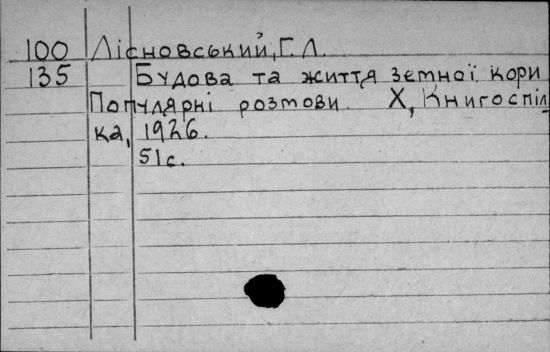 100 Лісновський, Г. Л.
135 Будова та життя земної кори
Популярні розмови. Х, Книгоспіл
ка, 1926.
51 с.